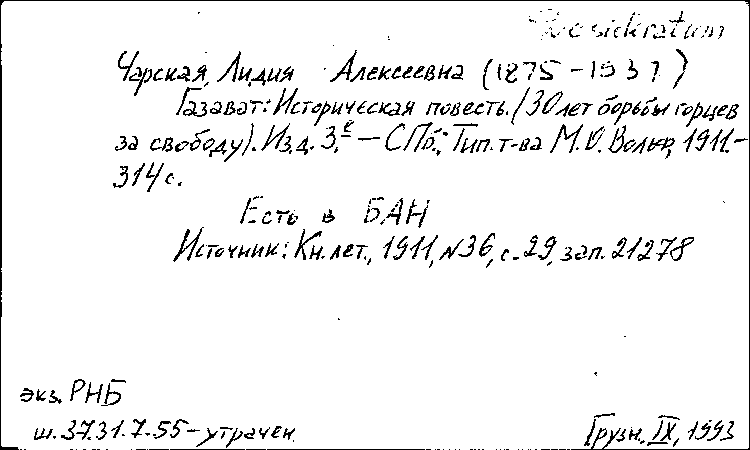 Desideratum
Чарская, Лидия Алексеевна (1875-1937)
Газават: Историческая повесть. (30 лет борьбы горцев
за свободу). Изд. 3.е — СПб.: Тип. т-ва М.О. Вольф, 1911.-
314 с.
Есть в БАН
Источник: Кн. лет., 1911, №36, с. 29, зап. 21278
экз. РНБ
ш. 37.31.7.55 - утрачен
Грузн. IX, 1993